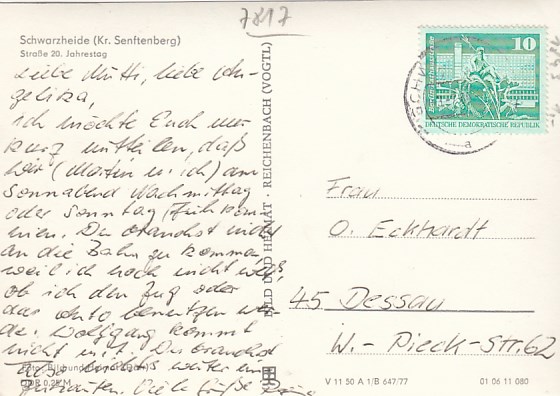 7817
Schwarzheide (Kr. Senftenberg)
Straße 20. Jahrestag
Liebe Mutti, liebe An-
gelika,
ich möchte Euch nur
kurz mitteilen, daß
wir (Martin u. ich) am
Sonnabend Nachmittag
oder Sonntag früh kom-
men. Du brauchst nicht
an die Bahn zu kommen,
weil ich noch nicht weiß,
ob ich den Zug oder
das Auto benutzen wer-
de. Wolfgang kommt
nicht mit. Du brauchst
also nichts weiter
Viele Grüße
DDR 0,25 M
BILD UND HEIMAT · REICHENBACH (VOGTL)
10
DEUTSCHE DEMOKRATISCHE REPUBLIK
Frau
O. Eckhardt
45 Dessau
W.-Pieck-Str. 62
V 11 50 A 1/B 647/77
01 06 11 080